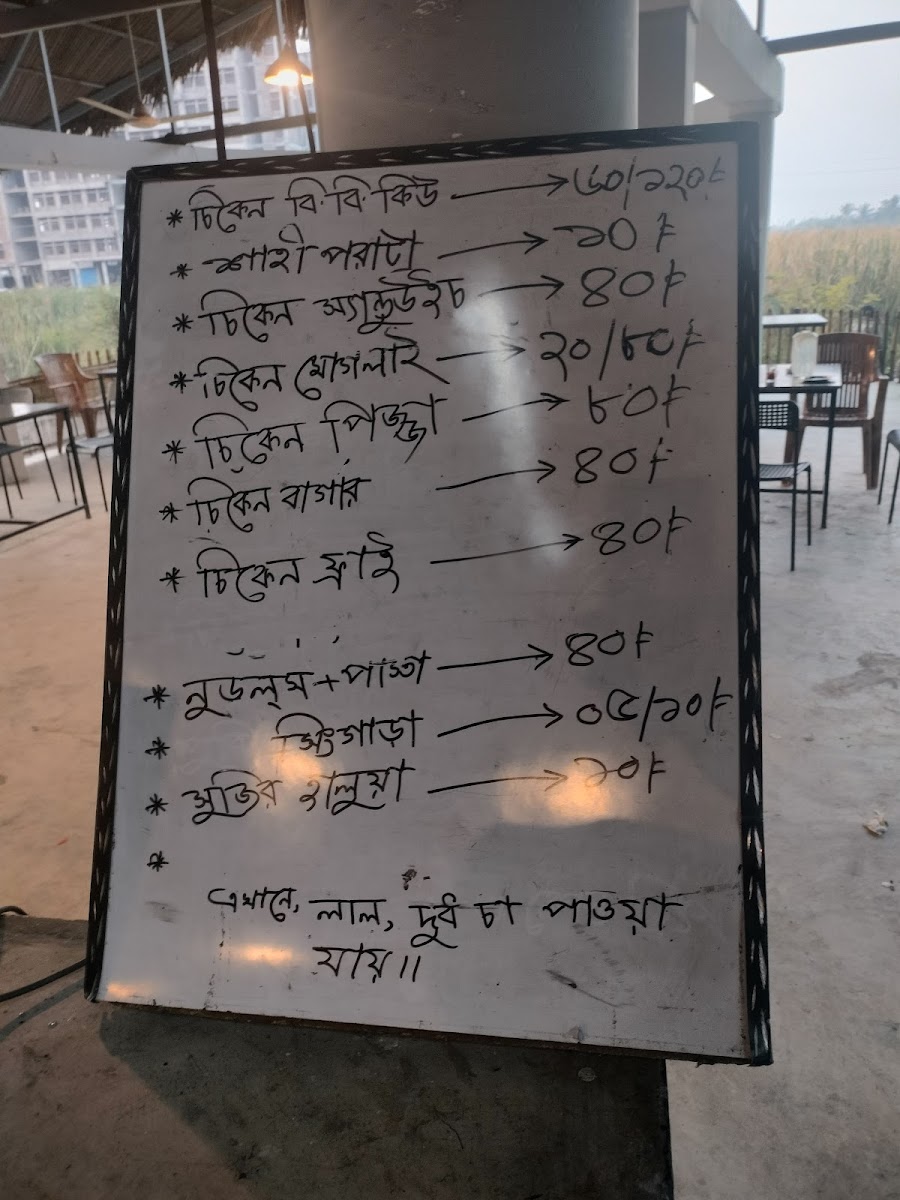 * চিকেন বি.বি.কিউ → ৬০/১২০৳
* শাহী পরাটা → ১০৳
* চিকেন স্যান্ডুউইচ → ৪০৳
* চিকেন মোগলাই → ২০/৮০৳
* চিকেন পিজ্জা → ৮০৳
* চিকেন বার্গার → ৪০৳
* চিকেন ফ্রাই → ৪০৳
* নুডল্স + পাস্তা → ৪০৳
* সিংগাড়া → ০৫/১০৳
* সুজির হালুয়া → ১০৳
*
এখানে, লাল, দুধ চা পাওয়া
যায়॥